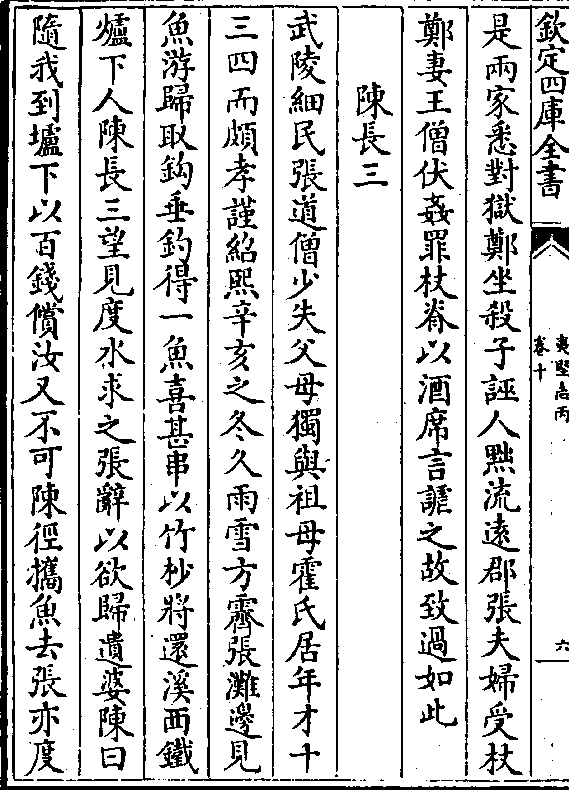 欽定四庫全書
夷堅志丙
卷十
六
是兩家悉對獄鄭坐殺子誣人黥流遠郡張夫婦受杖
鄭妻王僧伏姦罪杖脊以酒席言謔之故致過如此
陳長三
武陵細民張道僧少失父母獨與祖母霍氏居年才十
三四而頗孝謹紹熙辛亥之冬久雨雪方霽張灘邊見
魚游歸取鈎垂釣得一魚喜甚串以竹杪將還溪西鐵
爐下人陳長三望見度水求之張辭以欲歸遺婆陳曰
隨我到壚下以百錢償汝又不可陳徑攜魚去張亦度